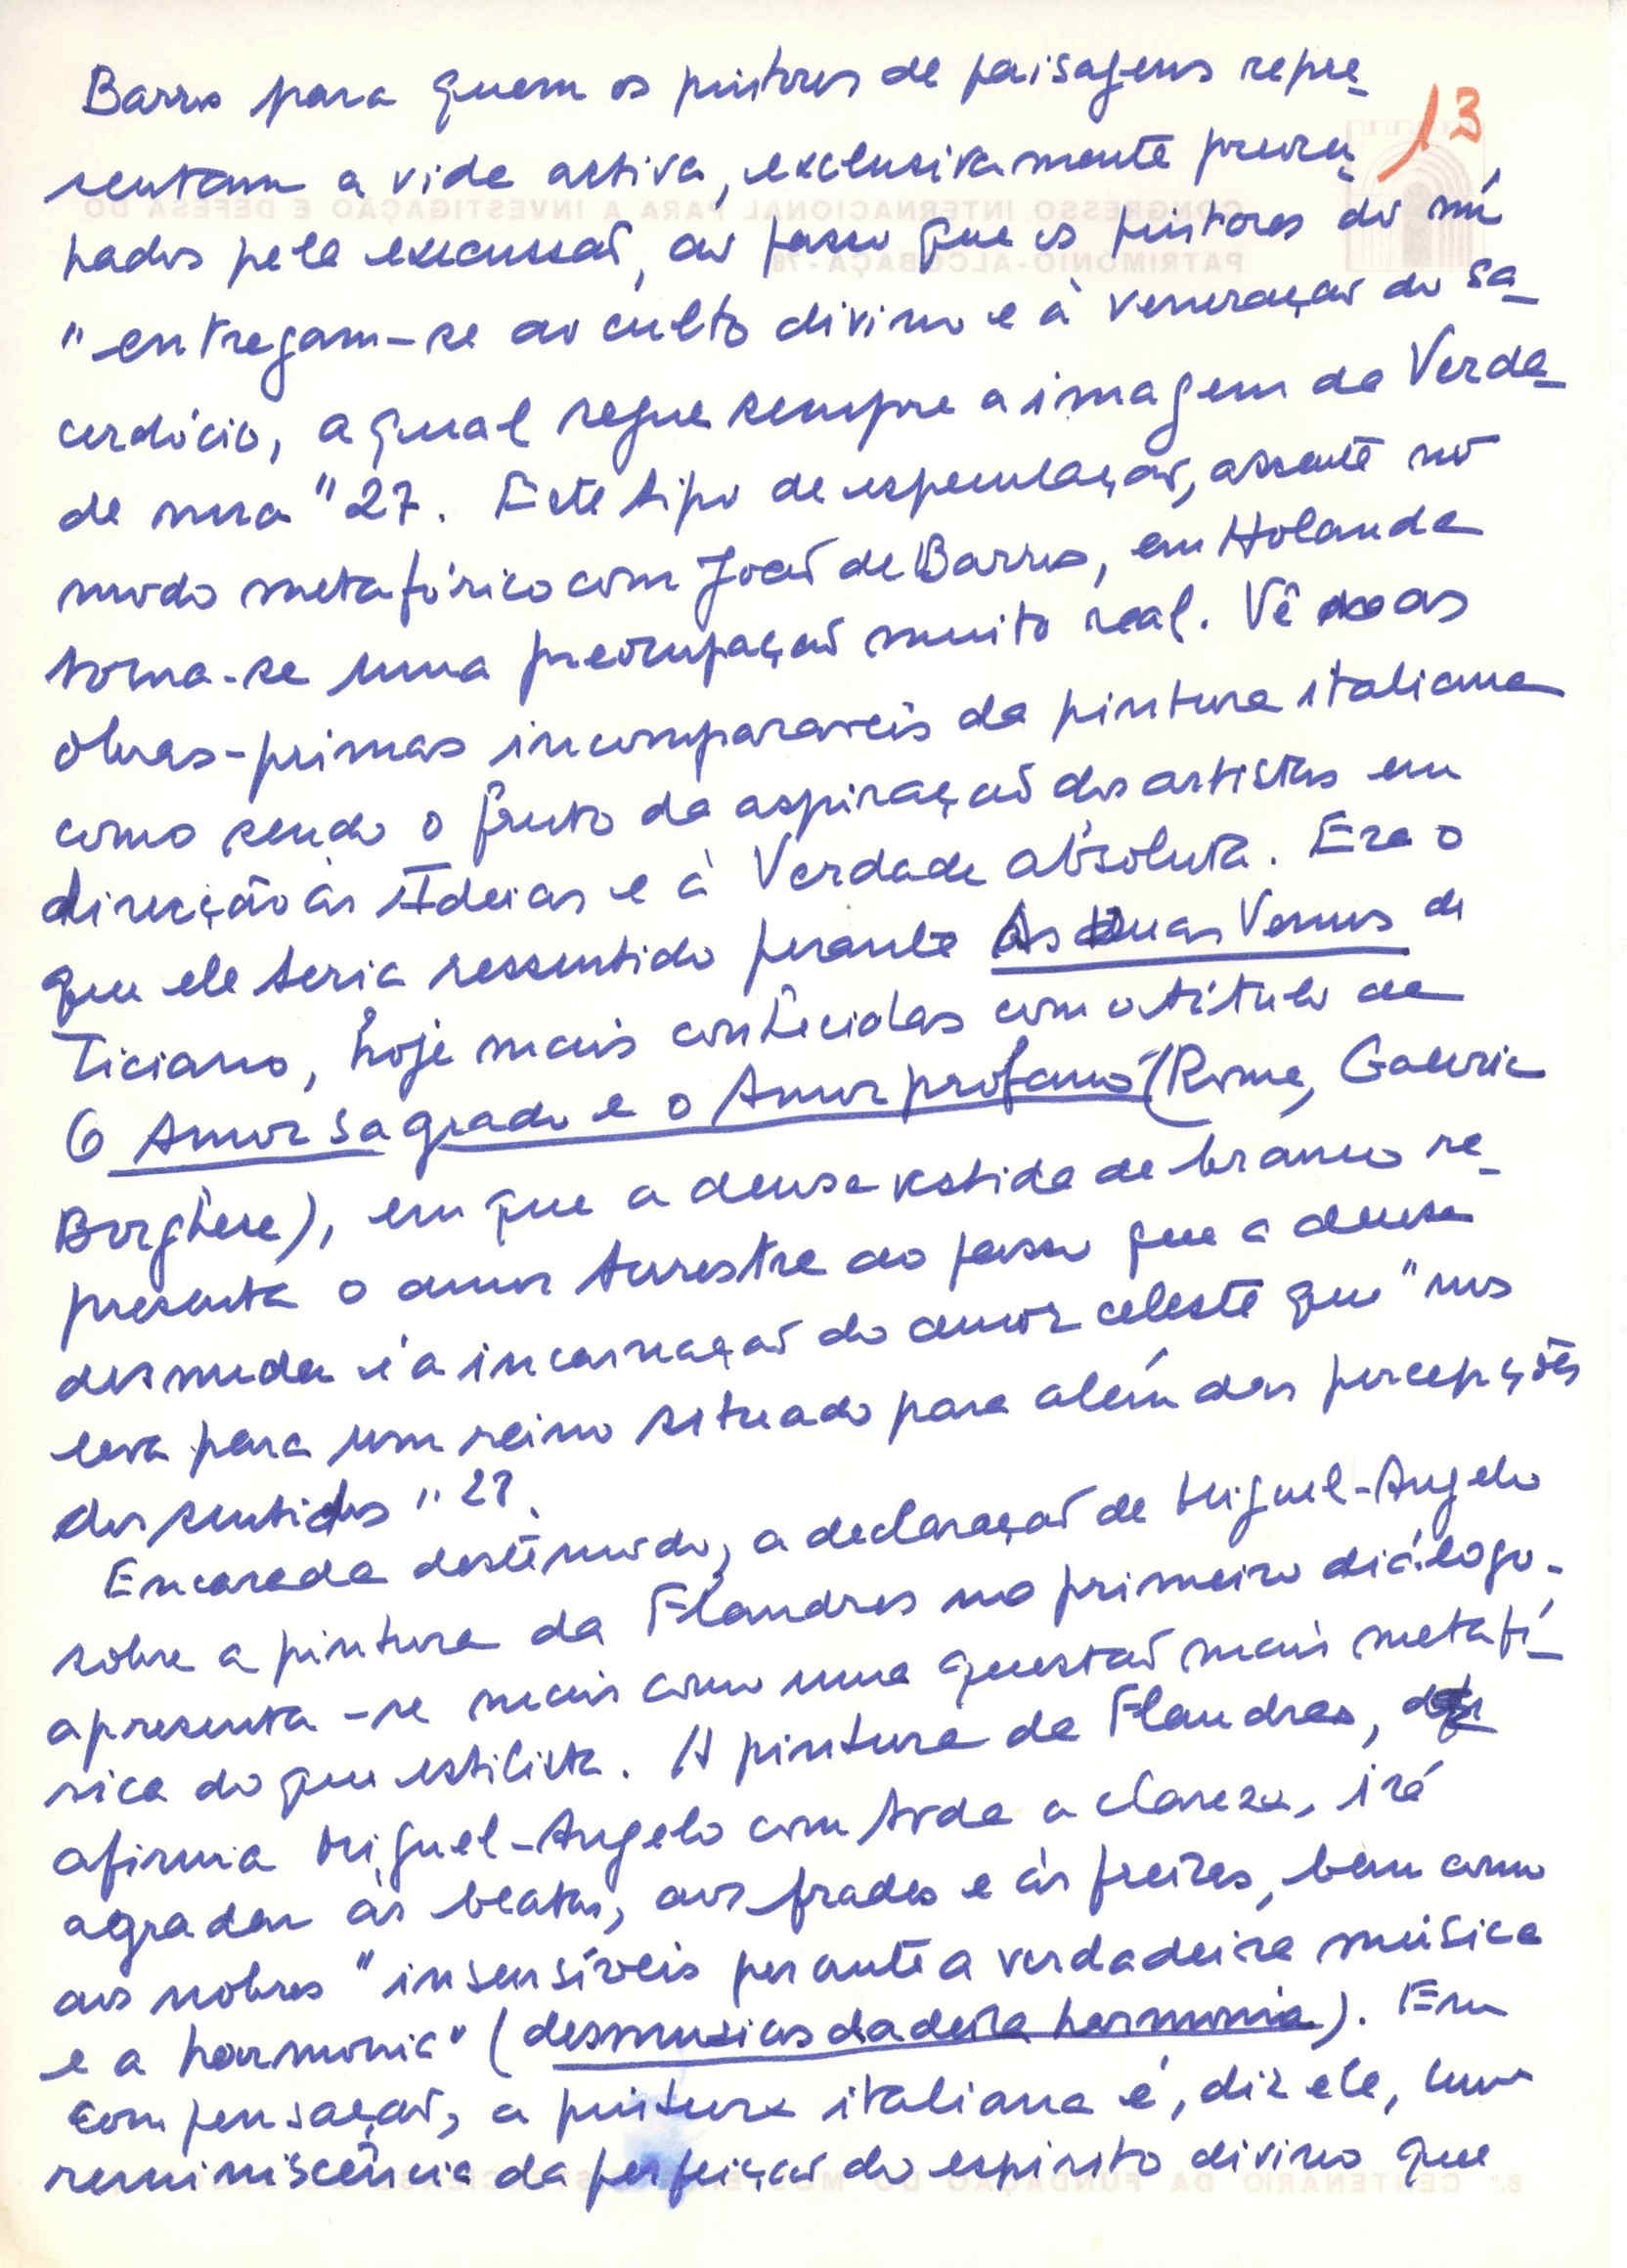 13
Barros para quem os pintores de paisagens repre-
sentam a vida activa, exclusivamente preocu-
pados pela execussão, ao passo que os pintores do nú
"entregam-se ao culto divino e à veneração do sa-
cerdócio, a qual segue sempre a imagem da Verda-
de nua" 27. Este tipo de especulação, assente no
modo metafórico com João de Barros, em Holanda
torna-se uma preocupação muito real. Vê as
obras-primas incomparaveis da pintura italiana
como sendo o fruto da aspiração dos artistas em
direcção às Ideias e à Verdade absoluta. Era o
que ele teria ressentido perante As duas Venus de
Ticiano, hoje mais conhecidas com o título de
O Amor sagrado e o Amor profano (Roma, Galeria
Borghese), em que a deusa vestida de branco re-
presenta o amor terrestre ao passo que a deusa
desnuda é a incarnação do amor celeste que "nos
leva para um reino situado para além das percepções
dos sentidos" 28.
Encarada deste modo, a declaração de Miguel-Angelo
sobre a pintura da Flandres no primeiro diálogo.
apresenta-se mais como uma questão mais metafí-
sica do que estilista. A pintura da Flandres,
afirma Miguel-Angelo com toda a clareza, irá
agradar às beatas, aos frades e às freiras, bem como
aos nobres "insensíveis perante a verdadeira música
e a harmonia" (desmusicos da deira harmonia). Em
compensação, a pintura italiana é, diz ele, uma
reminiscência da perfeição do espirito divino que
CONGRESSO INTERNACIONAL PARA A INVESTIGAÇÃO E DEFESA DO
PATRIMÓNIO-ALCOBAÇA-78
8.º CENTENÁRIO DA FUNDAÇÃO DO